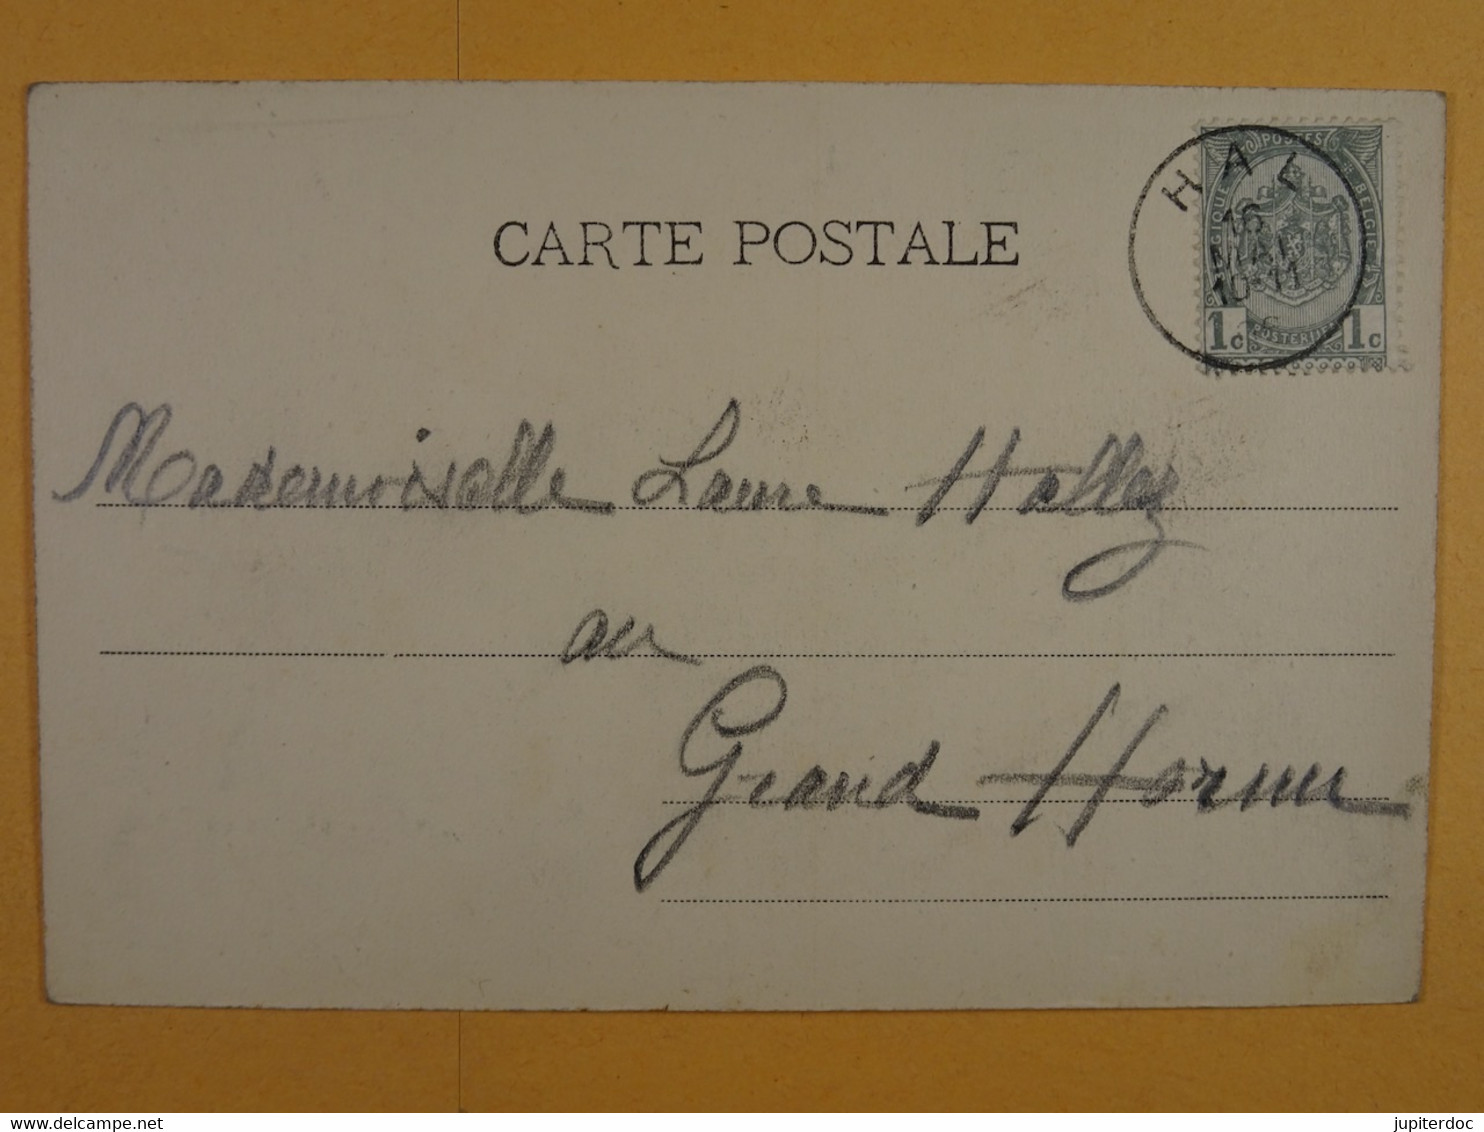 CARTE POSTALE
HAL
16
MAI
10-11
POSTES
BELGIQUE
BELGIE
1c POSTERIJEN 1c
Mademoiselle Laure Hallez
au
Grand Hornu
jupiterdoc